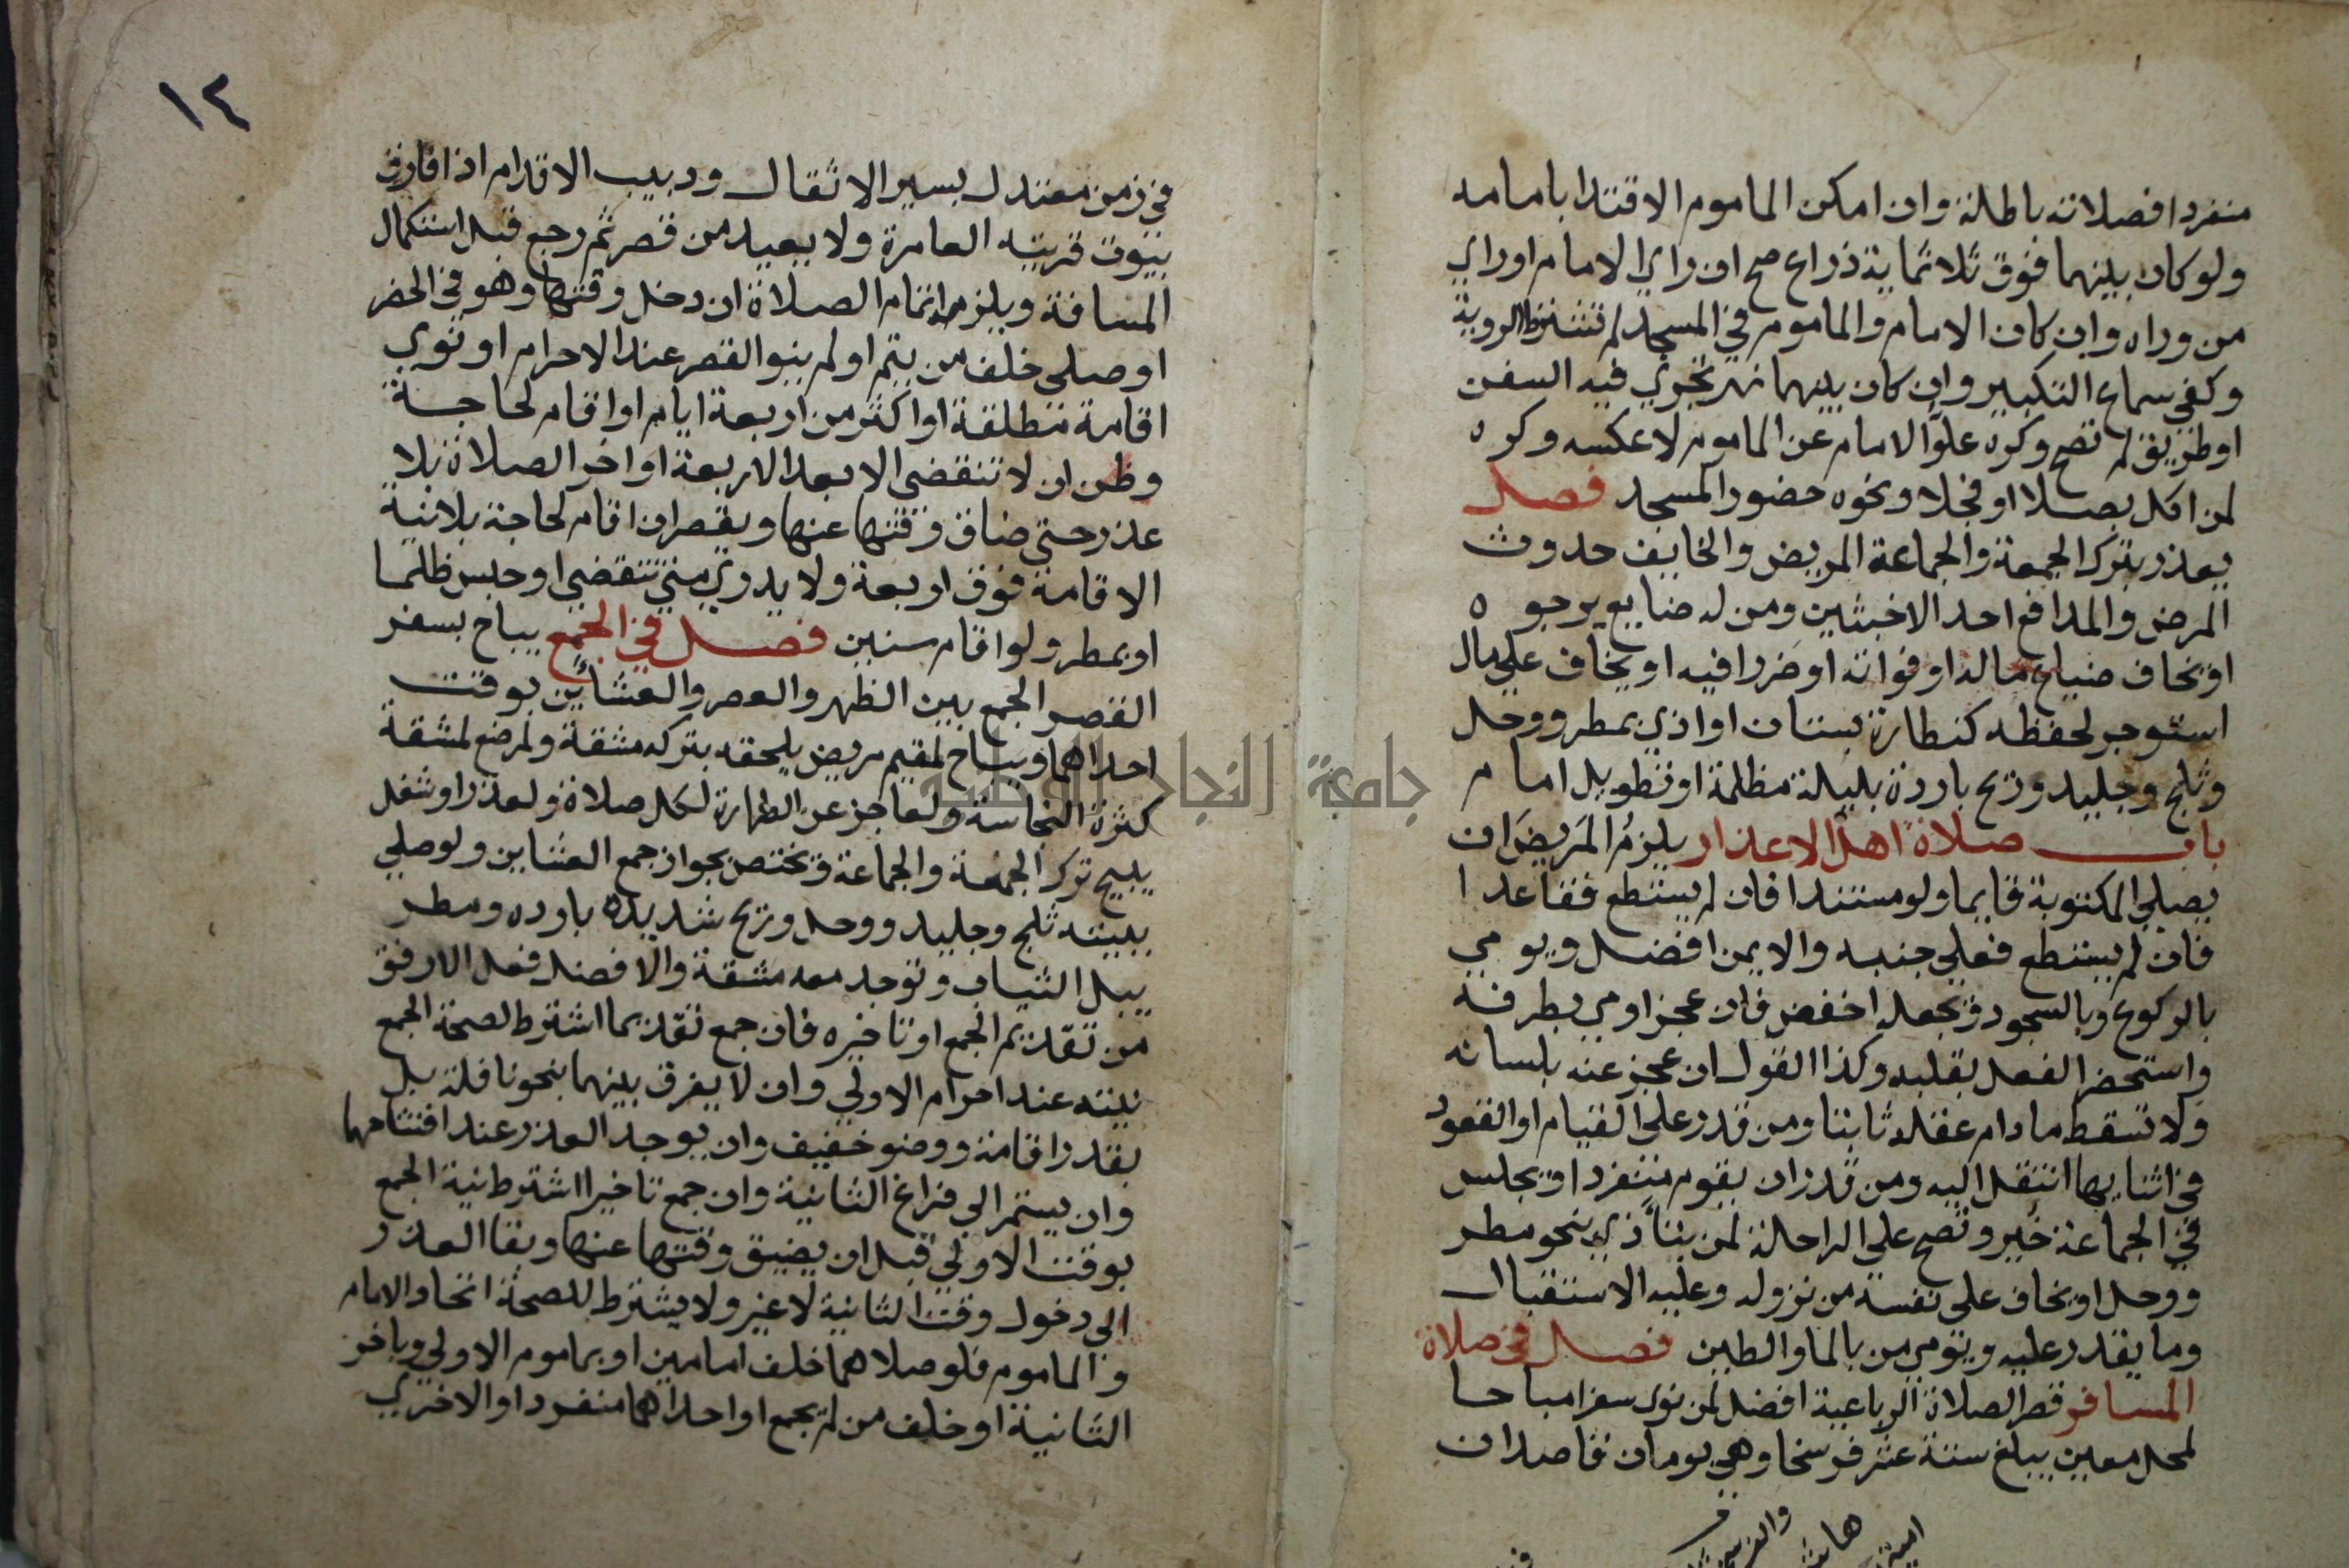 منفردا فصلاته باطلة وان امكن الماموم الاقتدا بامامه
ولو كان بينهما فوق ثلاثماية ذراع صح ان راي الامام او راي
من وراه وان كان الامام والماموم في المسجد لم تشترط الروية
وكفي سماع التكبير وان كان بينهما نهر تجري فيه السفن
او طريق لم تصح وكره علو الامام عن الماموم لا عكسه وكره
لمن اكل بصلا او فجلا ونحوه حضور المسجد فصل
يعذر بترك الجمعة والجماعة المريض والخايف حدوث
المرض والمدافع احد الاخبثين ومن له ضايع يرجوه
او يخاف ضياع ماله او فواته او ضررا فيه او يخاف علي مال
استوجر لحفظه كنطارة بستان او اذي بمطر ووحل
وثلج وجليد وريح باردة بليلة مظلمة او تطويل امام
باب صلاة اهل الاعذار يلزم المريض ان
يصلي المكتوبة قايما ولو مستندا فان لم يستطع فقاعدا
فان لم يستطع فعلي جنبه والايمن افضل ويومي
بالركوع وبالسجود ويجعله اخفض فان عجز اومي بطرفه
واستحضر الفعل بقلبه وكذا القول ان عجز عنه بلسانه
ولا تسقط ما دام عقله ثابتا ومن قدر علي القيام او القعود
في اثنايها انتقل اليه ومن قدر ان يقوم منفردا ويجلس
في الجماعة خير وتصح علي الراحلة لمن يتأذي بنحو مطر
ووحل او يخاف علي نفسه من نزوله وعليه الاستقبال
وما يقدر عليه ويومي من بالما والطين فصل في صلاة
المسافر قصر الصلاة الرباعية افضل لمن نوي سفرا مباحا
لمحل معين يبلغ ستة عشر فرسخا وهي يومان قاصدان
١٢
في زمن معتدل بسير الاثقال ودبيب الاقدام اذا فارق
بيوت قريته العامرة ولا يعيد من قصر ثم رجع قبل استكمال
المسافة ويلزمه اتمام الصلاة ان دخل وقتها وهو في الحضر
او صلي خلف من يتم او لم ينو القصر عند الاحرام او نوي
اقامة مطلقة او اكثر من اربعة ايام او اقام لحاجة
وظن ان لا تنقضي الا بعد الاربعة او اخر الصلاة بلا
عذر حتي ضاق وقتها عنها ويقصر ان اقام لحاجة بلا نية
الاقامة فوق اربعة ولا يدري متي تنقضي او حبس ظلما
او بمطر ولو اقام سنين فصل في الجمع يباح بسفر
القصر الجمع بين الظهر والعصر والعشائين بوقت
احداهما ويباح لمقيم مريض يلحقه بتركه مشقة ولمرضع لمشقة
كثرة النجاسة ولعاجز عن الطهارة لكل صلاة ولعذر او شغل
يبيح ترك الجمعة والجماعة ويختص بجواز جمع العشاين ولو صلي
ببيته ثلج وجليد ووحل وريح شديدة باردة ومطر
يبل الثياب وتوجد معه مشقة والافضل فعل الارفق
من تقديم الجمع او تاخيره فان جمع تقديما اشترط لصحة الجمع
نيته عند احرام الاولي وان لا يفرق بينهما بنحو نافلة بل
بقدر اقامة ووضو خفيف وان يوجد العذر عند افتتاحهما
وان يستمر الي فراغ الثانية وان جمع تاخيرا اشترط نية الجمع
بوقت الاولي قبل ان يضيق وقتها عنها وبقا العذر
الي دخول وقت الثانية لا غير ولا يشترط للصحة اتحاد الامام
والماموم فلو صلاهما خلف امامين او بماموم الاولي وباخر
الثانية او خلف من لم يجمع او احداهما منفردا والاخري
جامعة النجاح الوطنية